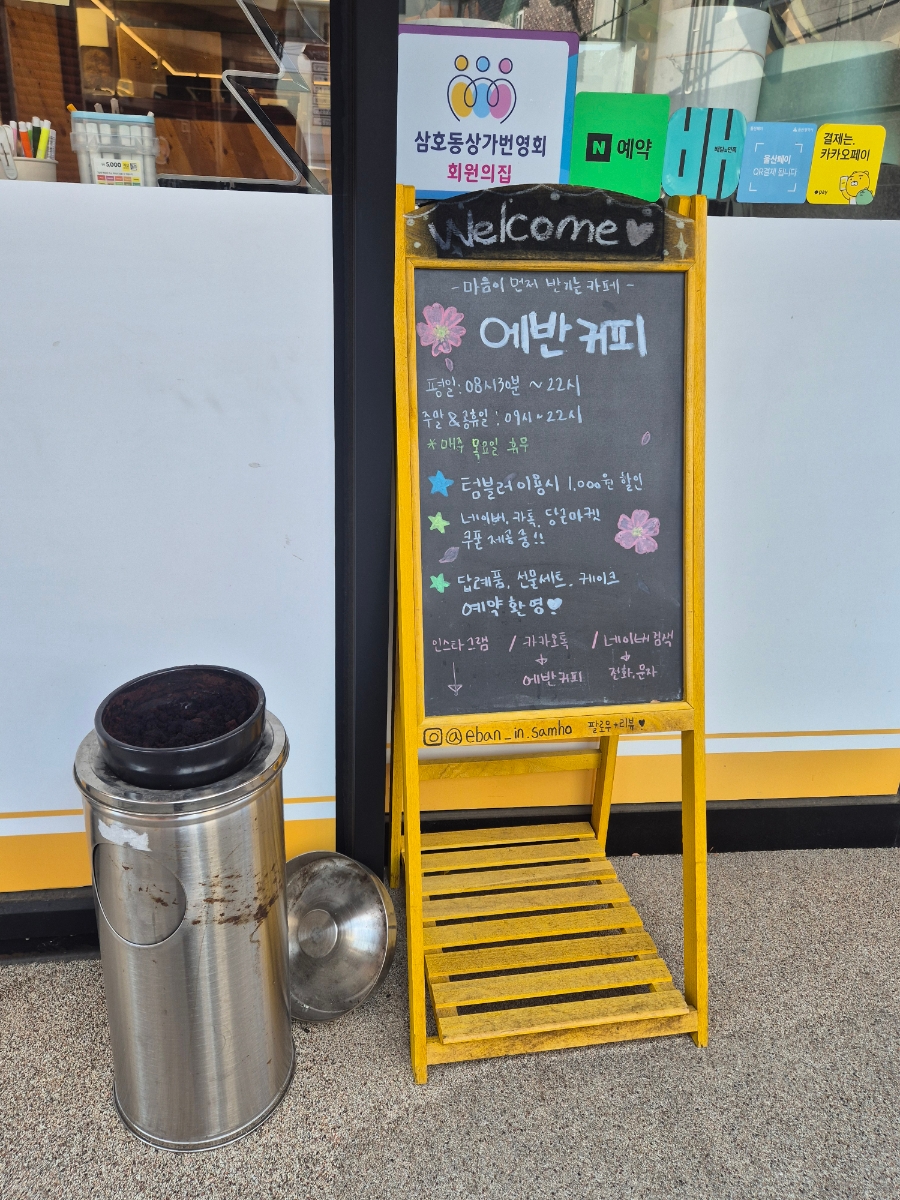 삼호동상가번영회
회원의집
N 예약
배달의민족
울산페이
QR결제 됩니다
결제는.
카카오페이
pay
5,000
Welcome
-마음이 먼저 반기는 카페-
에반 커피
평일: 08시30분 ~ 22시
주말&공휴일: 09시~22시
*매주 목요일 휴무
텀블러 이용시 1.000원 할인
네이버. 카톡. 당근마켓
쿠폰 제공중!!
답례품, 선물세트. 케이크
예약 환영
인스타그램 / 카카오톡 / 네이버 검색
에반커피 전화.문자
@eban_in.samho 팔로우+리뷰